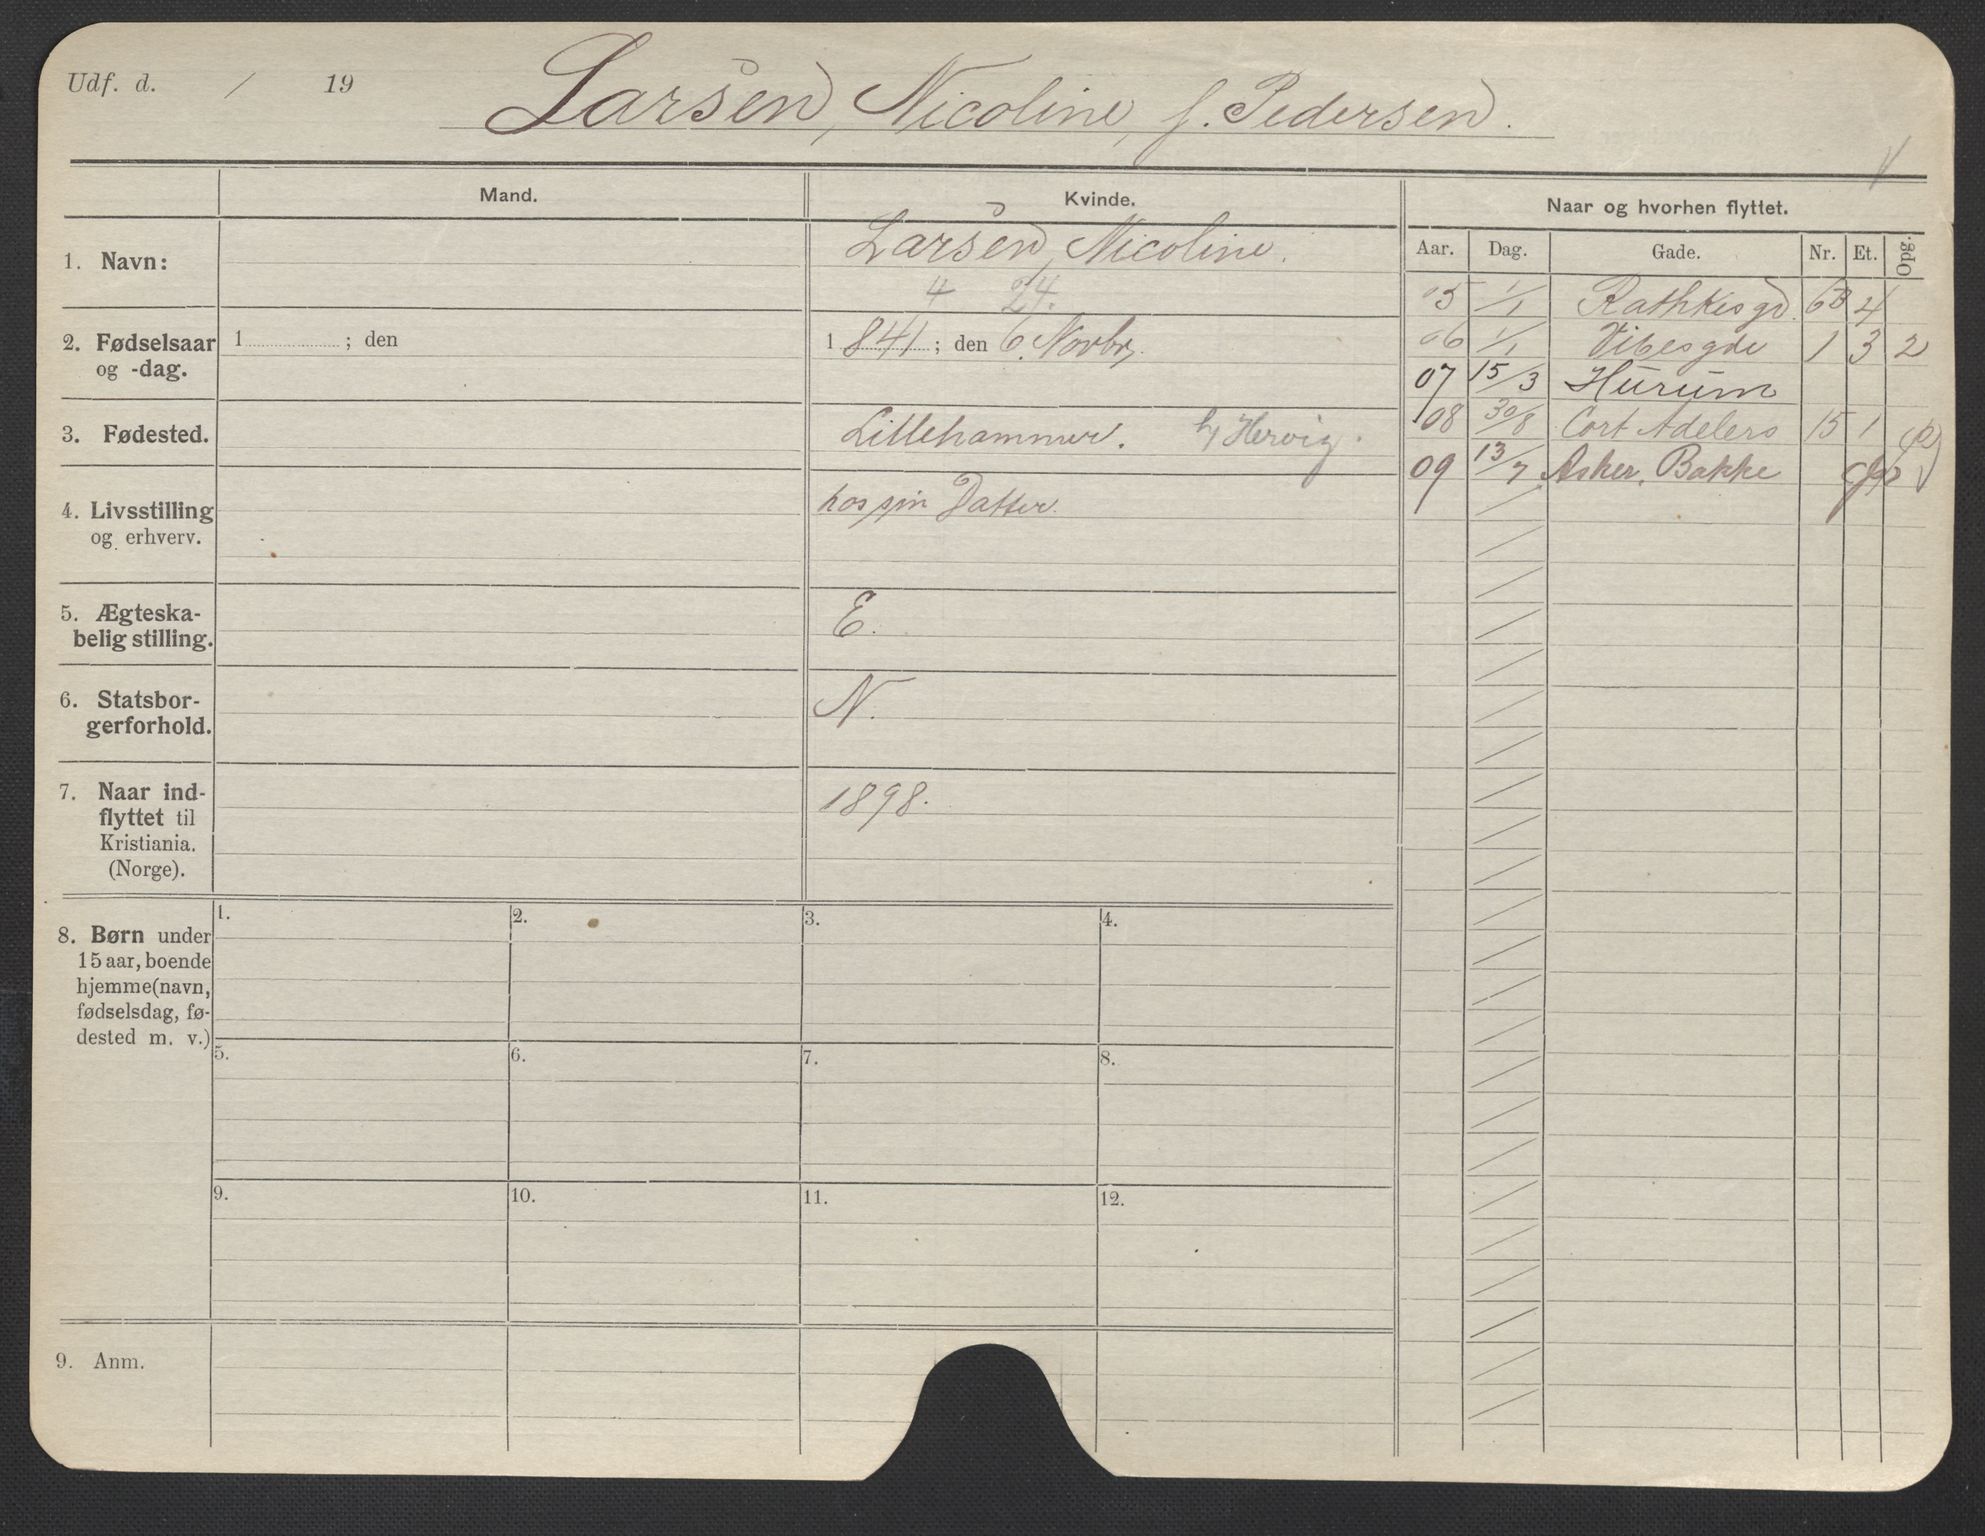 Udf. d. / 19
Larsen, Nicoline, f. Pedersen.
Mand.
Kvinde.
Naar og hvorhen flyttet.
Aar. Dag. Gade. Nr. Et. Opg.
1. Navn:
Larsen, Nicoline.
4 24.
2. Fødselsaar
og -dag.
1 ; den
1 841 ; den 6. Novbr.
3. Fødested.
Lillehammer. h/ Hervig.
4. Livsstilling
og erhverv.
hos sin Datter.
5. Ægteska-
belig stilling.
E.
6. Statsbor-
gerforhold.
N.
7. Naar ind-
flyttet til
Kristiania.
(Norge).
1898.
05 1/1 Rathkesgd. 4
06 1/1 Vibesgde 1 3 2
07 15/3 Hurum
08 30/8 Cort Adelers 15 1
09 13/7 Asker, Bakke
8. Børn under
15 aar, boende
hjemme (navn,
fødselsdag, fø-
dested m. v.)
1. 2. 3. 4.
5. 6. 7. 8.
9. 10. 11. 12.
9. Anm.